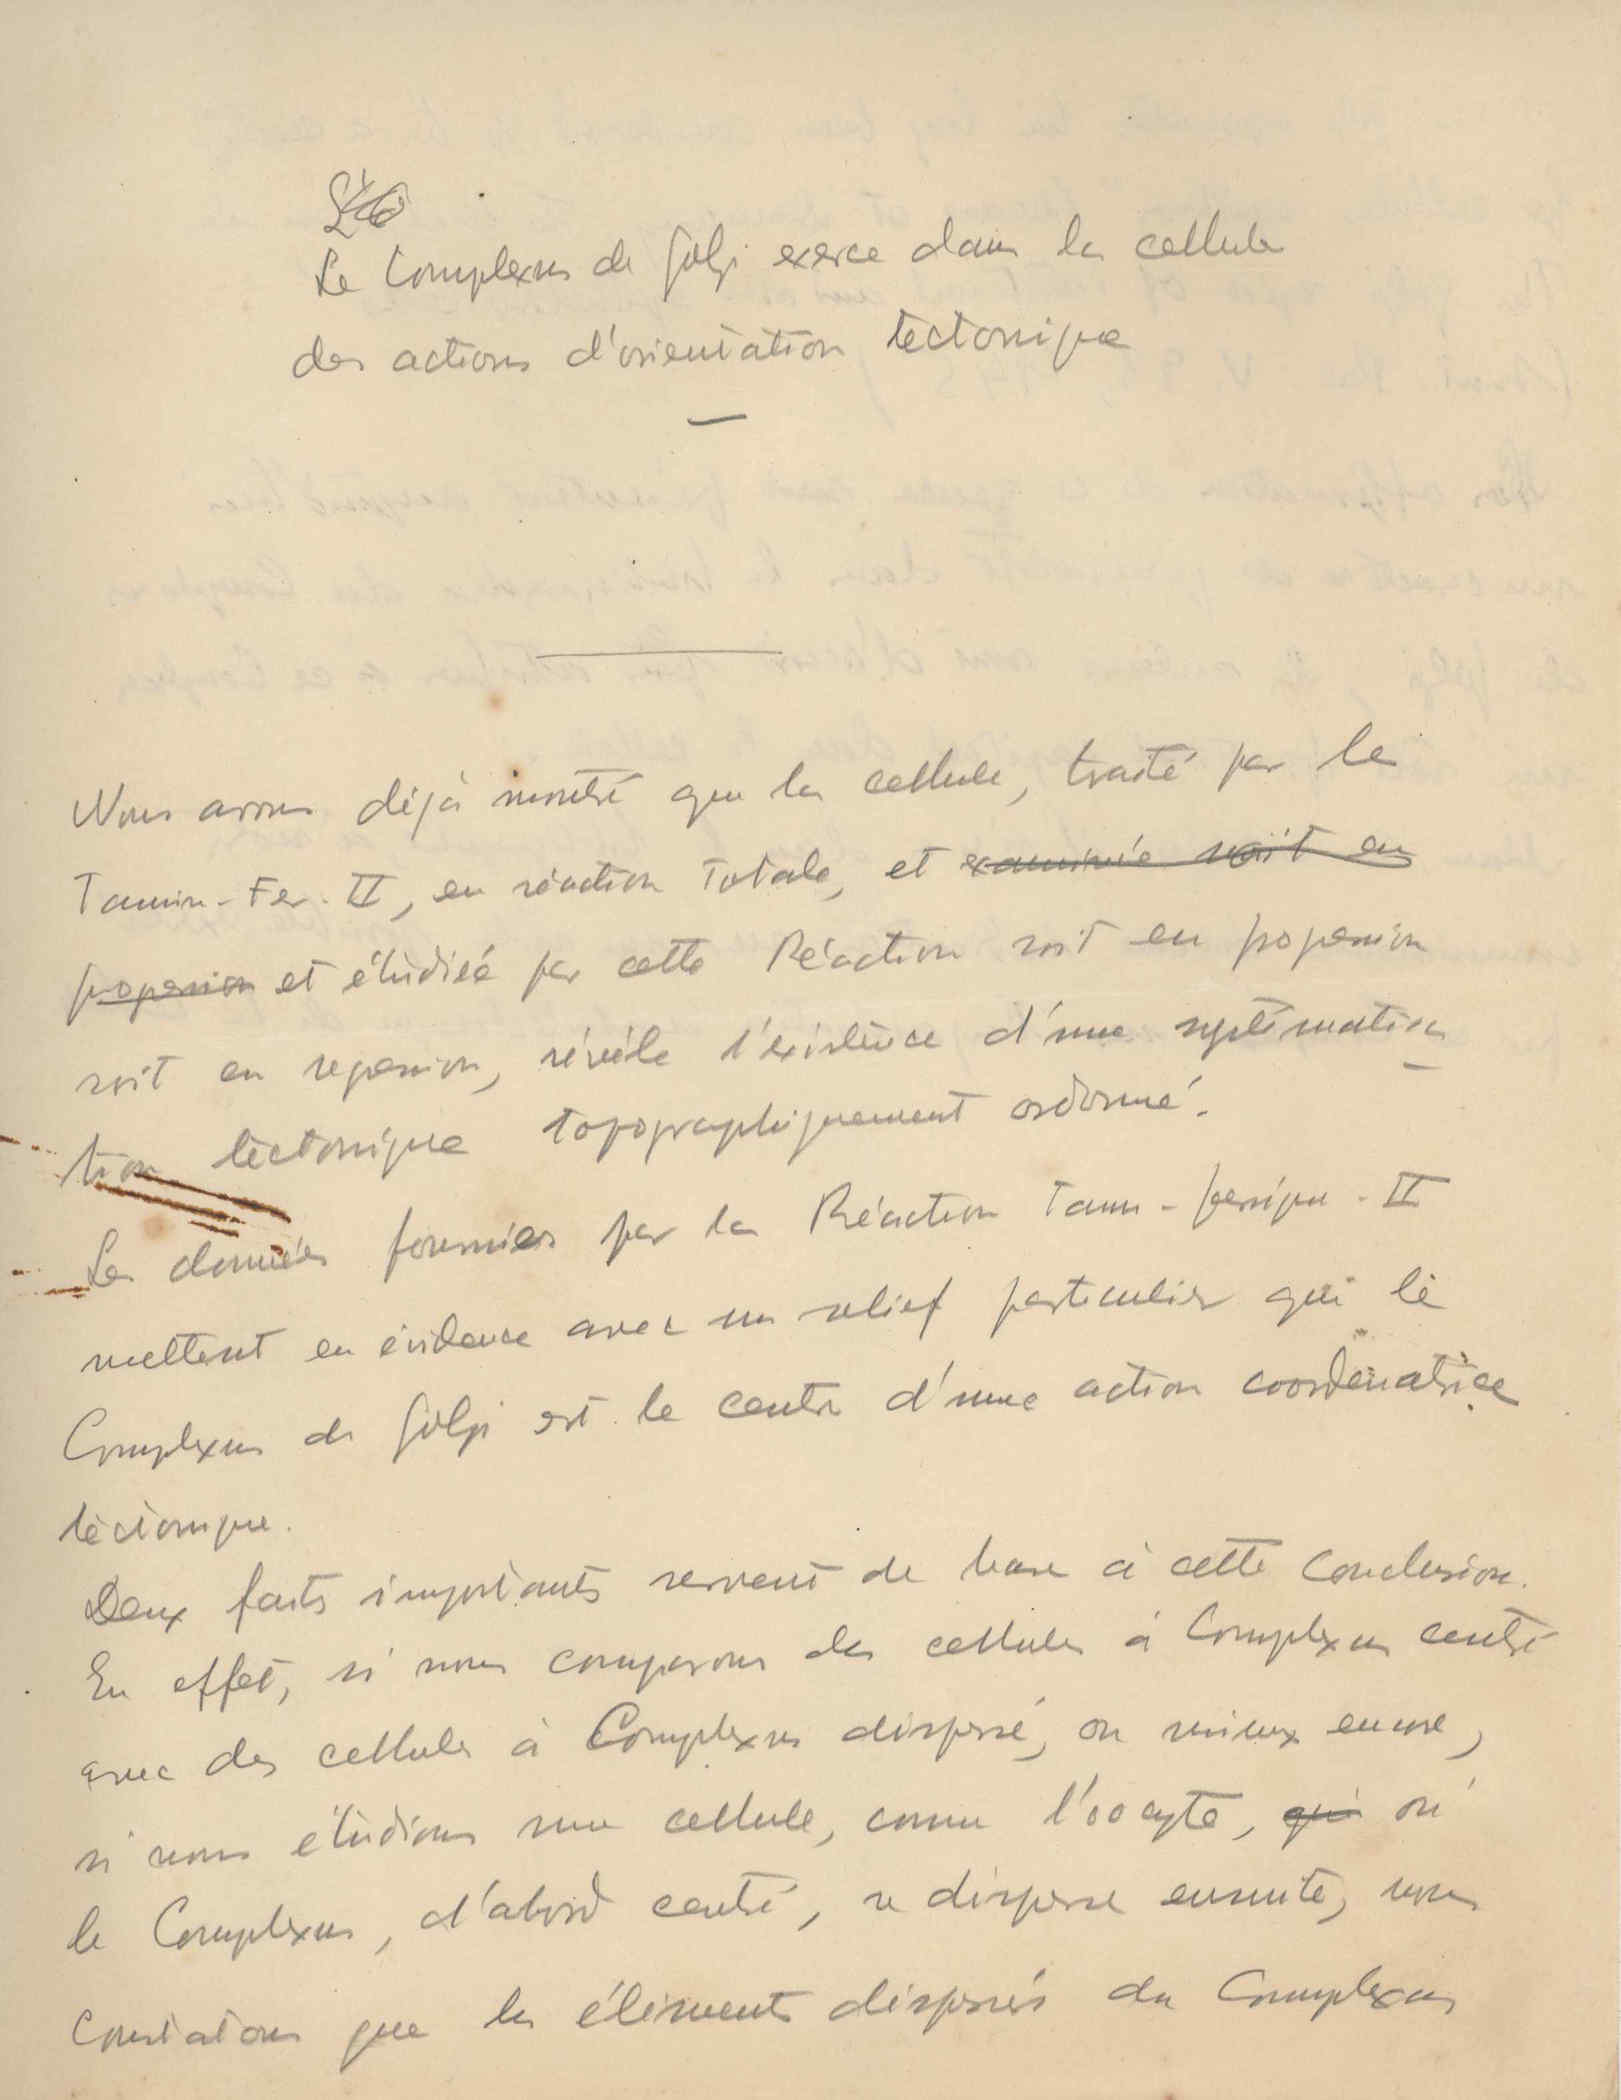 Le Complexus de Golgi exerce dans la cellule
des actions d'orientation tectonique
Nous avons déjà montré que la cellule, traité par le
Tannin-Fer-II, en réaction Totale, et examinée soit en
progression et étudiée par cette Réaction soit en progression
soit en regression, révèle l'existence d'une systématisa
tion tectonique topographiquement ordonné.
Les données fournies par la Réaction Tann-ferrique-II
mettent en évidence avec un relief particulier que le
Complexus de Golgi est le centre d'une action coordénatrice
tèctonique.
Deux faits importants servent de base à cette conclusion.
En effet, si nous comparons des cellules à Complexus centré
avec des cellules à Complexus dispersé, ou mieux encore,
si nous étudions une cellule, comme l'oocyte, qui où
le Complexus, d'abord centré, se disperse ensuite, nous
constatons que les éléments dispersés du Complexus